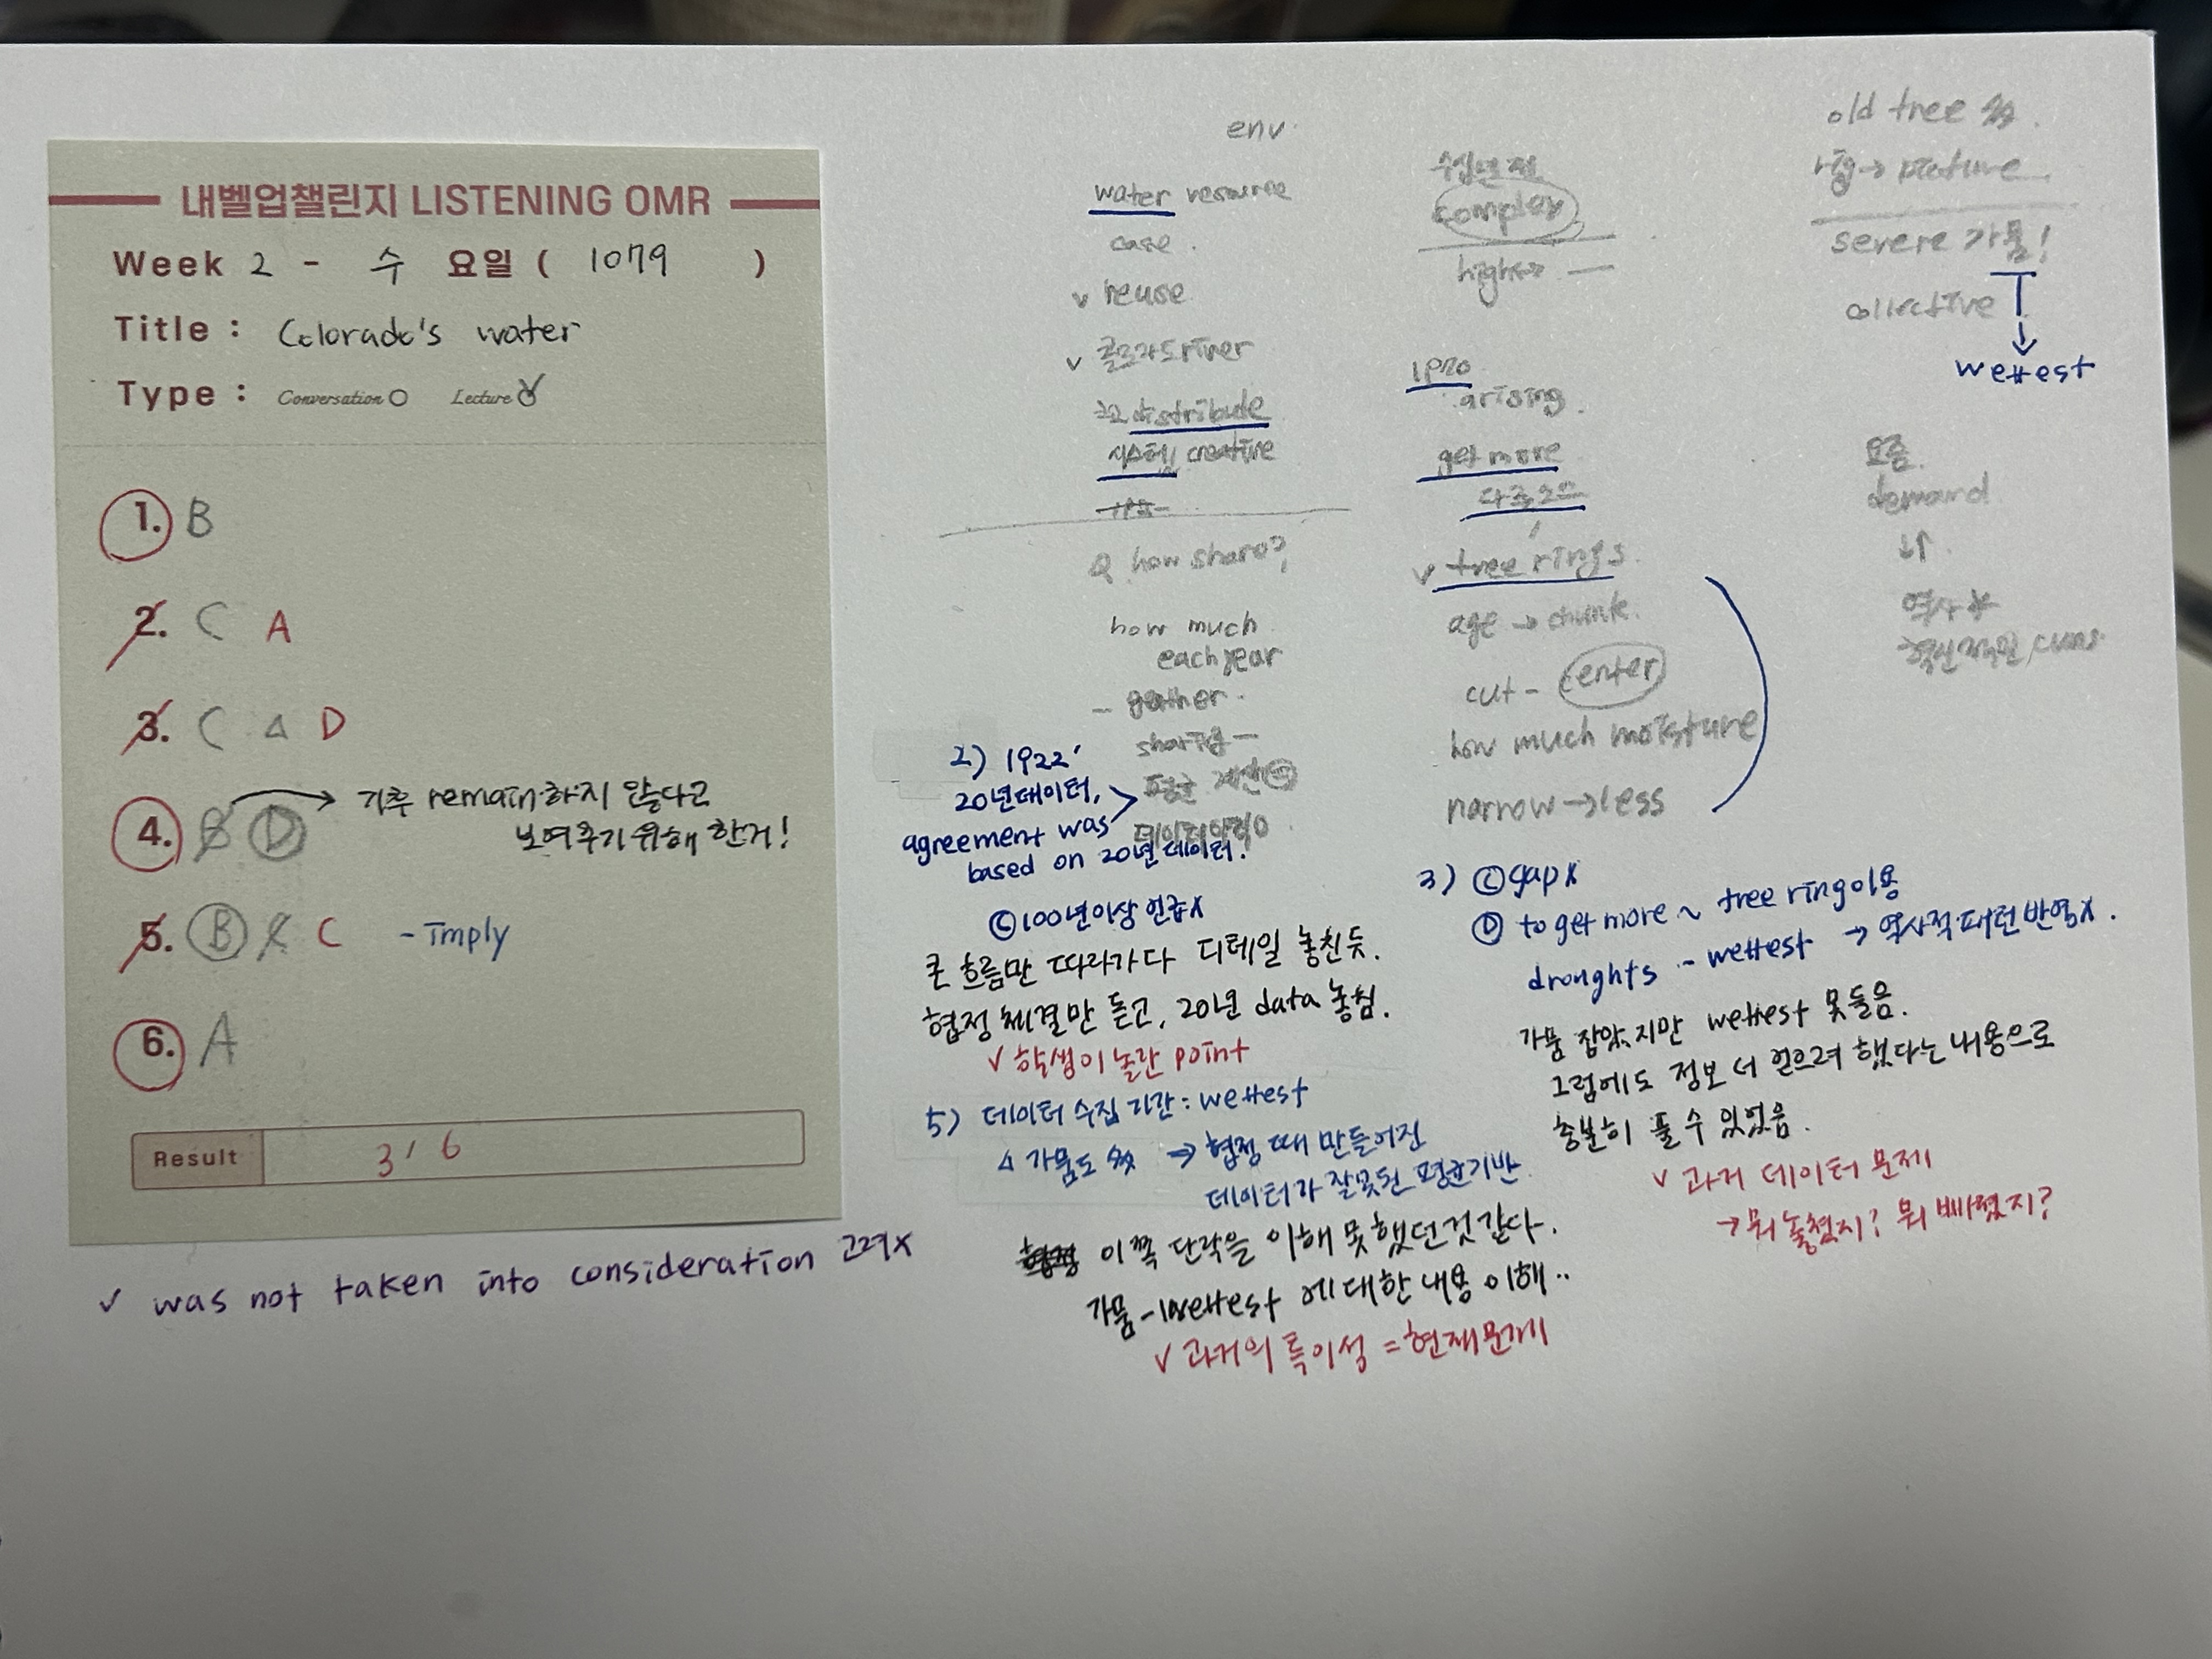 내벨업챌린지 LISTENING OMR
Week 2 - 수 요일 ( 1079 )
Title : Colorado's water
Type : Conversation Lecture
1. B
2. C A
3. C △ D
4. B D → 기후 remain하지 않는다고
보여주기 위해 한거!
5. B C - imply
6. A
Result 3 / 6
✓ was not taken into consideration 고려X
env
water resource
case
✓ reuse
✓ 콜로라도 river
distribute
시스템 creative
Q. how share?
how much
each year
- gather
sharing -
평균 계산
2) 1922'
20년데이터,
agreement was
based on 20년 데이터.
Ⓒ 100년이상 언급X
큰 흐름만 따라가다 디테일 놓친듯.
협정 체결만 듣고, 20년 data 놓침.
✓ 학생이 놀란 point
5) 데이터 수집 기간 : wettest
△ 가뭄도 多 → 협정 때 만들어진
데이터가 잘못된 평균기반
이쪽 단락을 이해 못했던것 같다.
가뭄 - wettest 에 대한 내용 이해..
✓ 과거의 특이성 = 현재문제
수십년 전
complex
arising
get more
✓ tree rings
age → chunk
cut - center
how much moisture
narrow → less
3) Ⓒ gap X
Ⓓ to get more ~ tree ring 이용
droughts - wettest → 역사적 패턴 반영X.
가뭄 잡았지만 wettest 못들음.
그럼에도 정보 더 얻으려 했다는 내용으로
충분히 풀 수 있었음.
✓ 과거 데이터 문제
→ 뭐 놓쳤지? 뭐 빠졌지?
old tree 多.
ring → picture
severe 가뭄!
collective
wettest
요즘
demand
↓↑